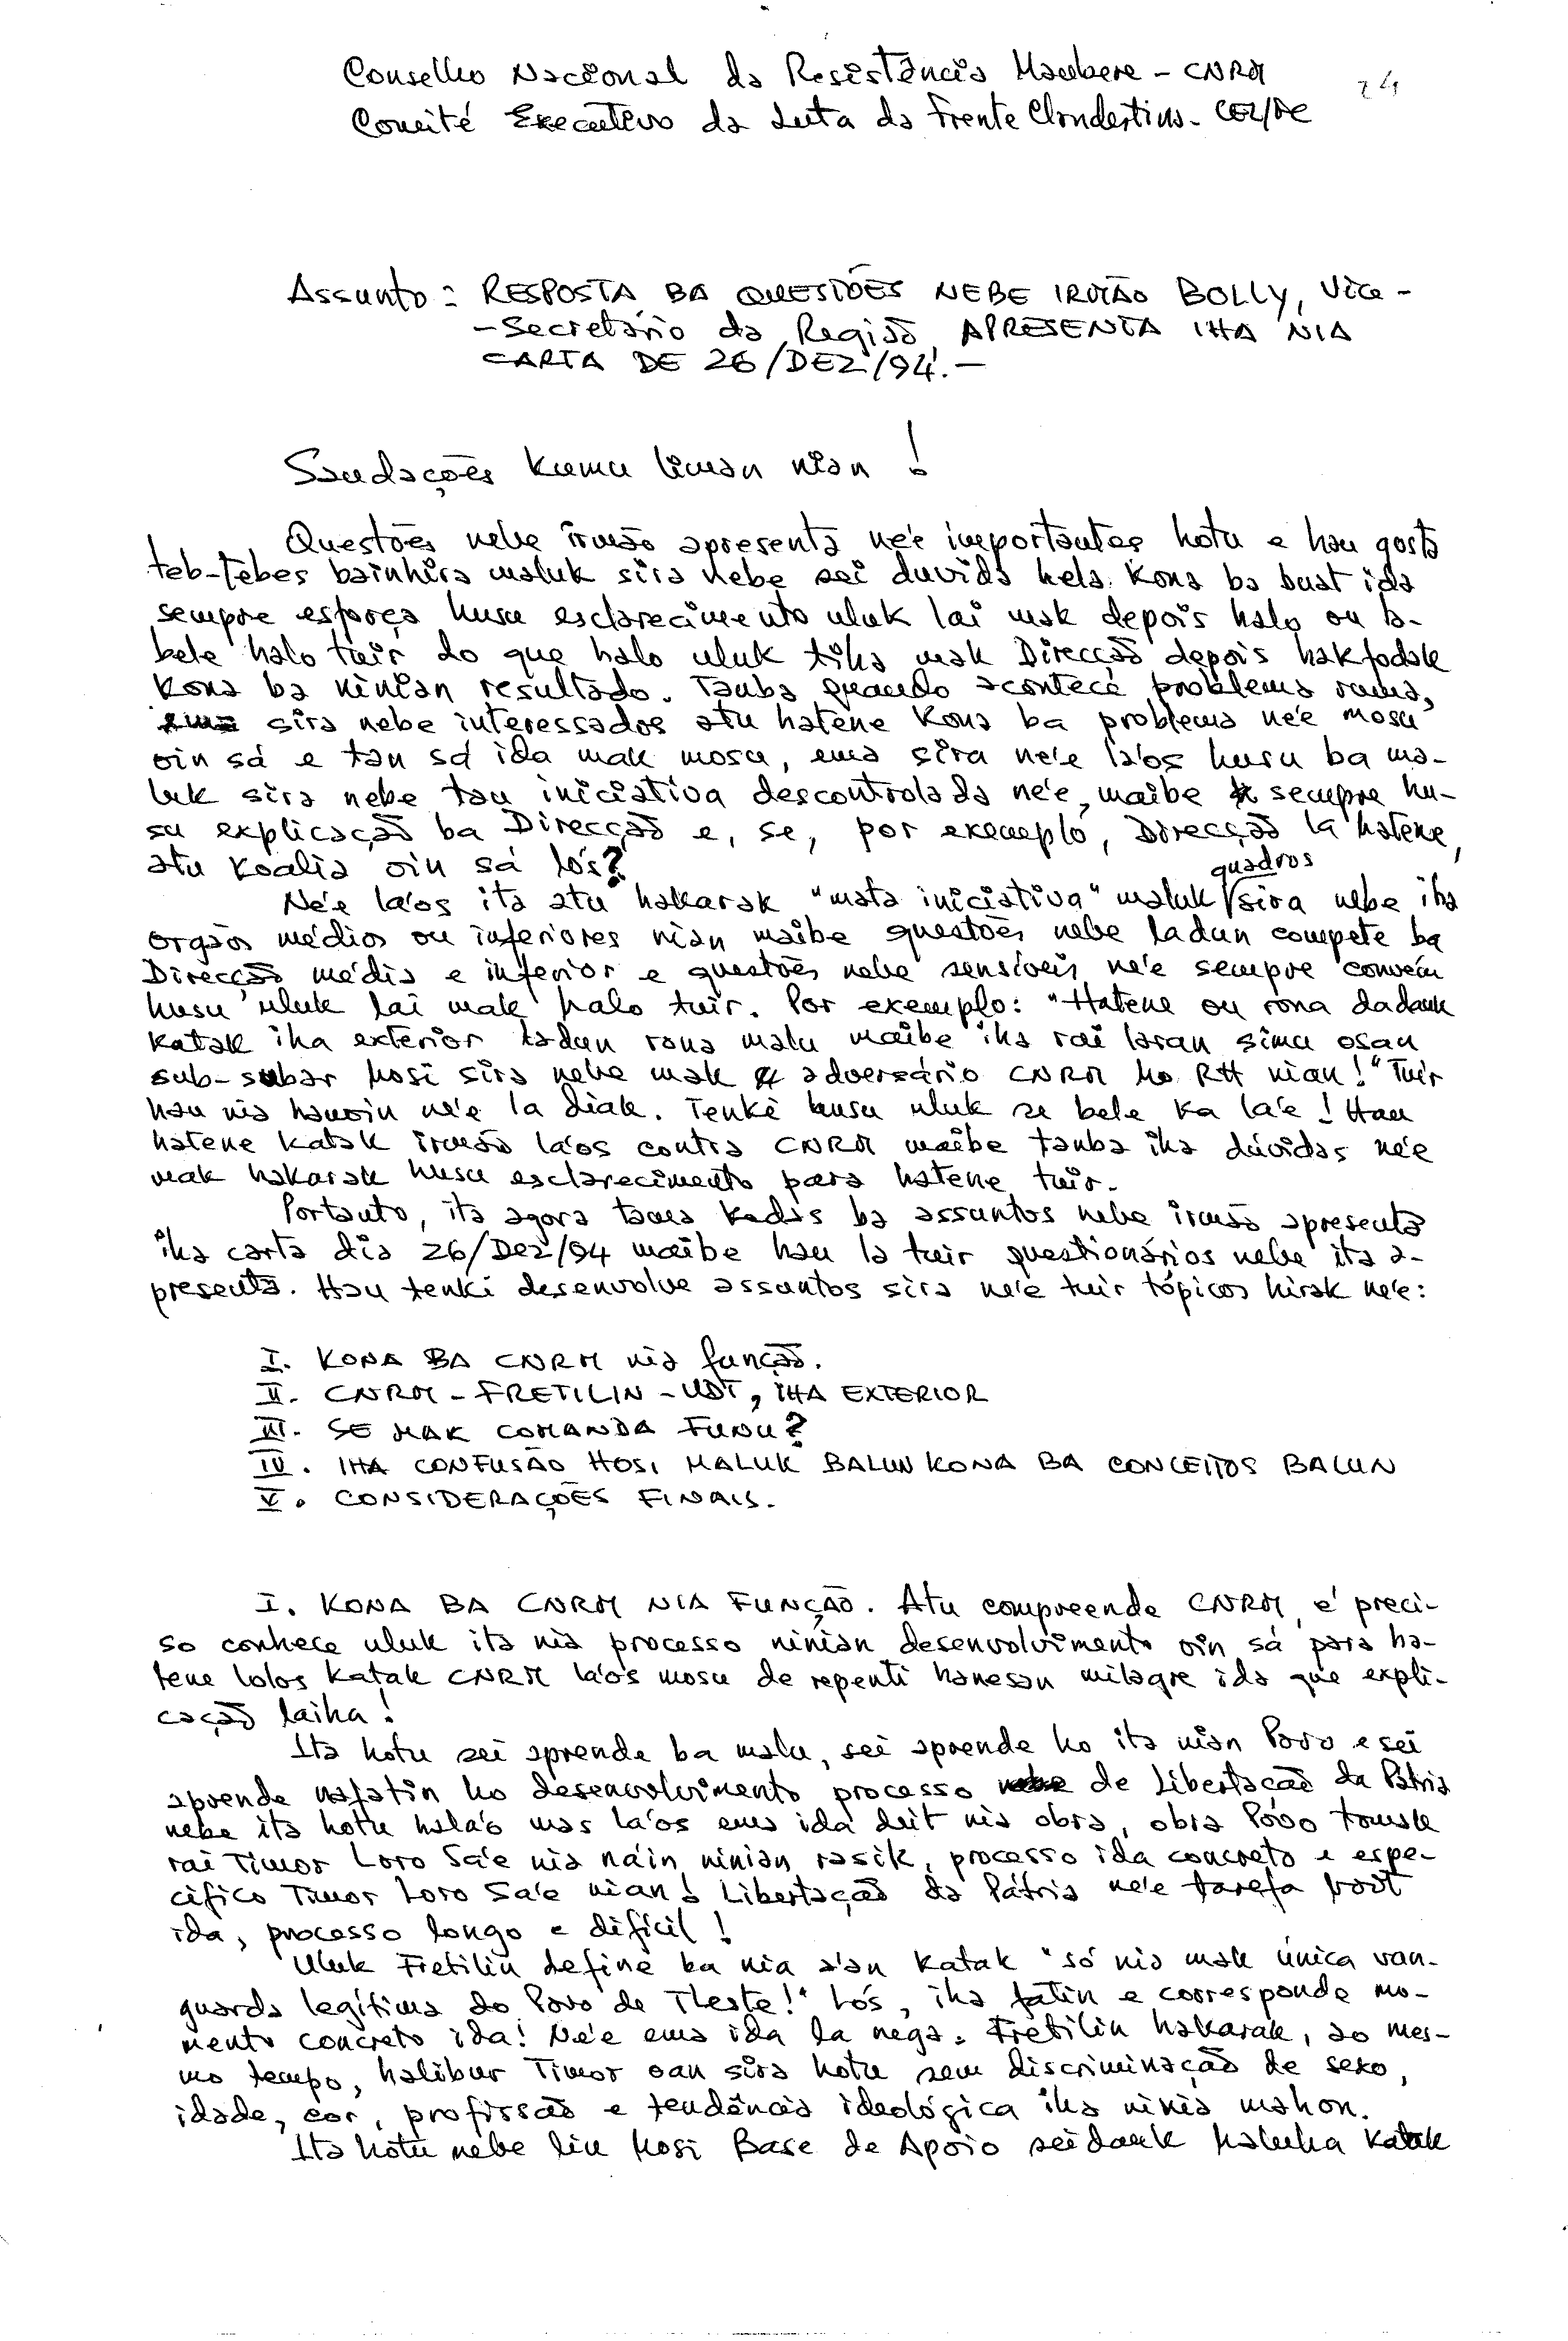 Conselho Nacional da Resistência Maubere - CNRM
Comité Executivo da Luta da Frente Clandestina - CEL/FC
Assunto: RESPOSTA BA QUESTÕES NEBE IRMÃO BOLLY, Vice-
-Secretário da Região, APRESENTA IHA NIA
CARTA DE 26/DEZ/94.-
Saudações kumu liman nian!
Questões nebe irmão apresenta ne'e importantes hotu e hau gosta
teb-tebes bainhira maluk sira nebe sei duvida hela kona ba buat ida
sempre esforça husu esclarecimento uluk lai mak depois halo ou la-
bele halo tuir do que halo uluk tiha mak Direcção depois hakfodak
kona ba ninian resultado. Tauba quando acontece problema ruma,
sira nebe interessados atu hatene kona ba problema ne'e mosu
oin sá e tan sá ida mak mosu, ema sira ne'e la'os husu ba ma-
luk sira nebe tau iniciativa descontrolada ne'e, maibe sempre hu-
su explicação ba Direcção e, se, por exemplo, Direcção la hatene,
atu koalia oin sá lo's?
Ne'e la'os ita atu hakarak "mata iniciativa" maluk quadros sira nebe iha
orgãos médios ou inferiores nian maibe questões nebe ladun compete ba
Direcção média e inferior e questões nebe sensíveis ne'e sempre convém
husu uluk lai mak halo tuir. Por exemplo: "Hatene ou rona dadauk
katak iha exterior ladun rona malu maibe iha rai laran simu osan
sub-subar hosi sira nebe mak adversário CNRM ho RH nian!" Tuir
hau nia hanoin ne'e la diak. Tenkè husu uluk se bele ka la'e! Hau
hatene katak irmão la'os contra CNRM maibe tauba iha dúvidas ne'e
mak hakarak husu esclarecimento para hatene tuir.
Portanto, ita agora tama kedas ba assuntos nebe irmão apresenta
iha carta dia 26/Dez/94 maibe hau la tuir questionários nebe ita a-
presenta. Hau tenki desenvolve assuntos sira ne'e tuir tópicos hirak ne'e:
I. KONA BA CNRM nia função.
II. CNRM - FRETILIN - UDT, IHA EXTERIOR
III. SE MAK COMANDA FUNU?
IV. IHA CONFUSÃO HOSI MALUK BALUN KONA BA CONCEITOS BALUN
V. CONSIDERAÇÕES FINAIS.
I. KONA BA CNRM NIA FUNÇÃO. Atu compreende CNRM, é preci-
so conhece uluk ita nia processo ninian desenvolvimento oin sá para ha-
tene lolos katak CNRM la'os mosu de repenti hanesan milagre ida que expli-
cação laiha!
Ita hotu sei aprende ba malu, sei aprende ho ita nian Povo e sei
aprende nafatin ho desenvolvimento processo de Libertação da Pátria
nebe ita hotu hala'o mas la'os ema ida deit nia obra, obra Povo tomak
rai Timor Loro Sa'e nia na'in ninian rasik, processo ida concreto e espe-
cífico Timor Loro Sa'e nian! Libertação da Pátria ne'e tarefa boot
ida, processo longo e difícil!
Uluk Fretilin define ba nia a'an katak "só nia mak única van-
guarda legítima do Povo de TLeste!" Lo's, iha fatin e corresponde mo-
mento concreto ida! Ne'e ema ida la nega. Fretilin hakarak, ao mes-
mo tempo, halibur Timor oan sira hotu sem discriminação de sexo,
idade, cor, profissão e tendência ideológica iha ninia mahon.
Ita hotu nebe liu hosi Base de Apoio seidauk haluha katak